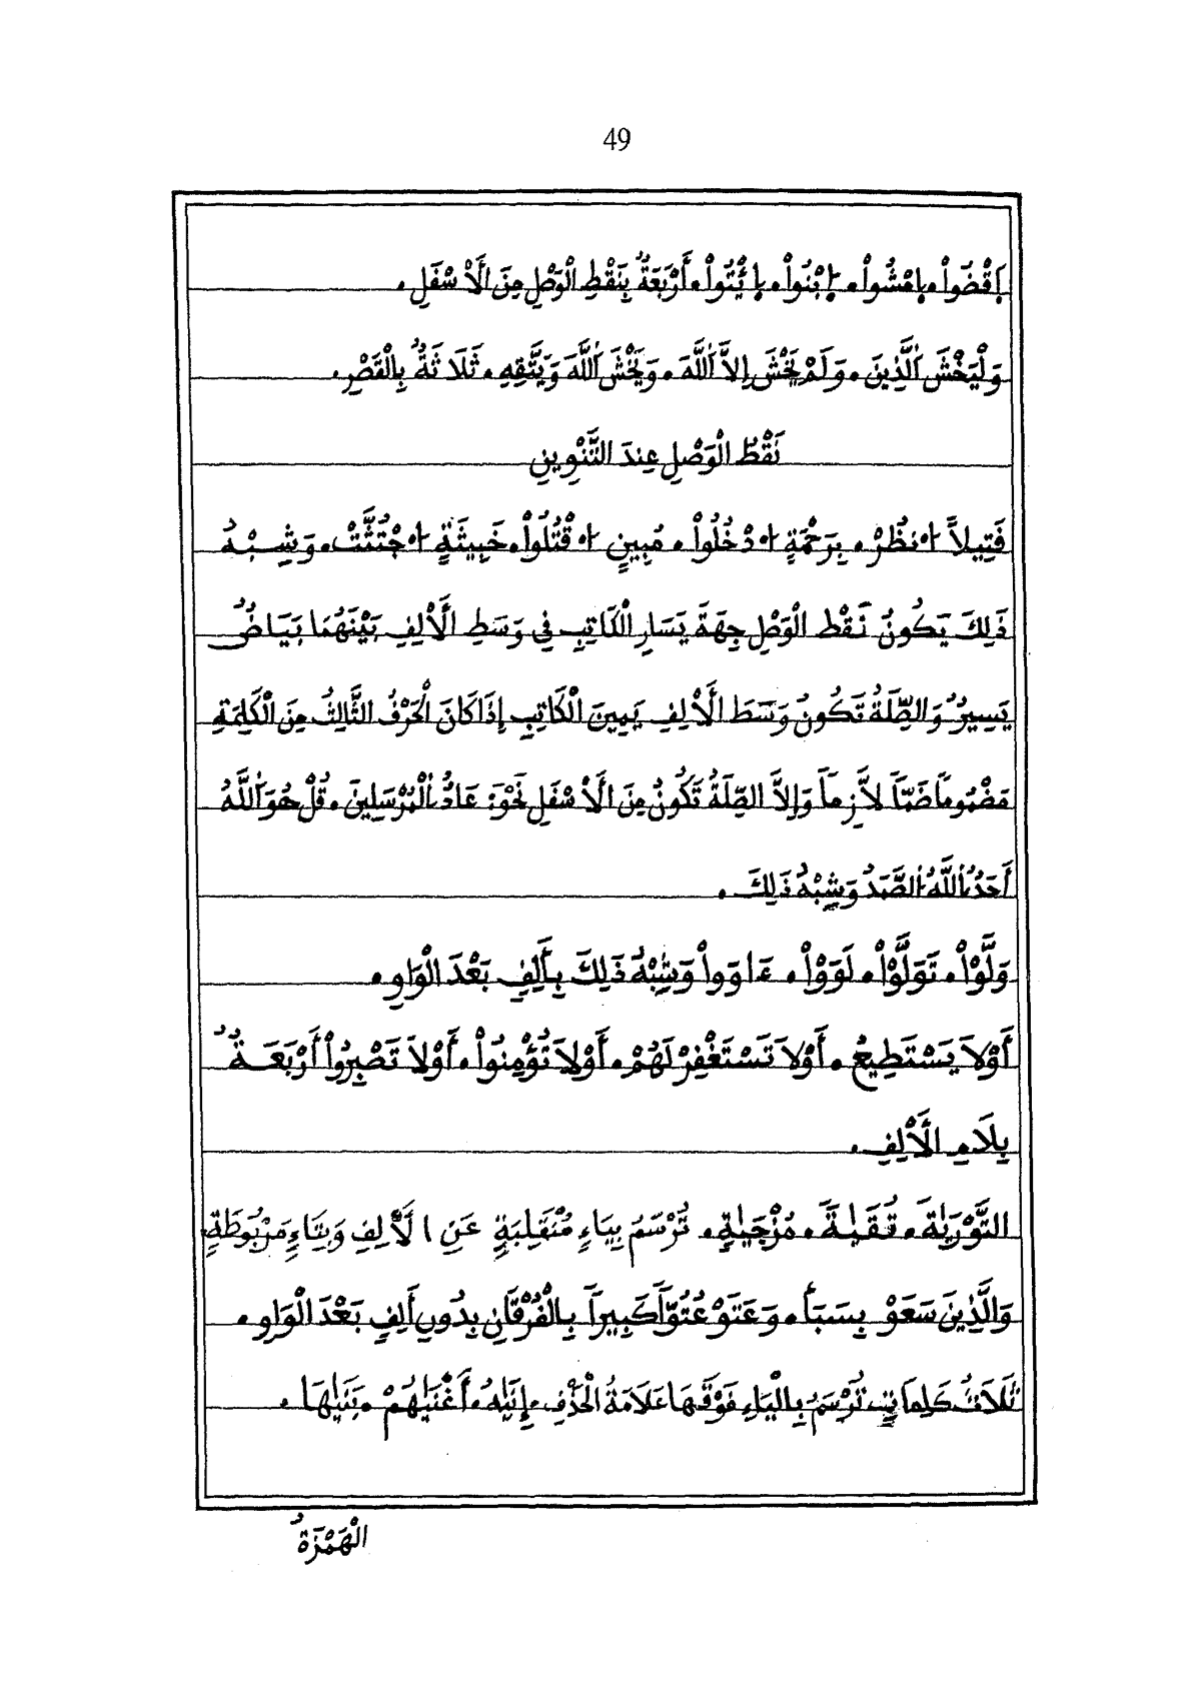 49
اِقْضُواْ ۰ اِمْشُواْ ۰ اِبْنُواْ ۰ اِئْتُواْ ۰ أَرْبَعَةٌ بِنَقْطِ الْوَصْلِ مِنَ الَأَسْفَلِ ۰
وَلْيَخْشَ اَلَّذِينَ ۰ وَلَمْ يَخْشَ إِلاَّ اَللَّهَ ۰ وَيَخْشَ اَللَّهَ وَيَتَّقِهِ ۰ ثَلَاثَةٌ بِالْقَصْرِ ۰
نَقْطُ الْوَصْلِ عِندَ التَّنْوِينِ
فَتِيلاً اُنظُرْ ۰ بِرَحْمَةٍ اُدْخُلُواْ ۰ مُبِينٍ اُقْتُلُواْ ۰ خَبِيثَةٍ اُجْتُثَّتْ ۰ وَشِبْهُ
ذَلِكَ يَكُونُ نَقْطُ الْوَصْلِ جِهَةَ يَسَارِ الْكَاتِبِ فِي وَسَطِ الَأَلِفِ بَيْنَهُمَا بَيَاضٌ
يَسِيرٌ وَالصِّلَةُ تَكُونُ وَسَطَ الَأَلِفِ يَمِينَ الْكَاتِبِ إِذَا كَانَ الْحَرْفُ الثَّالِثُ مِنَ الْكَلِمَةِ
مَضْمُوماً ضَمّاً لاَّزِماً وَإِلاَّ الصِّلَةُ تَكُونُ مِنَ الَأَسْفَلِ نَحْوَ عَادٌ اُلْمُرْسَلِينَ ۰ قُلْ هُوَ اَللَّهُ
أَحَدٌ اُللَّهُ اُلصَّمَدُ وَشِبْهُ ذَلِكَ ۰
وَلَّوْاْ ۰ تَوَلَّوْاْ ۰ لَوَوْاْ ۰ ءَاوَواْ وَشِبْهُ ذَلِكَ بِأَلِفٍ بَعْدَ الْوَاوِ ۰
أَوْلاَ يَسْتَطِيعُ ۰ أَوْلاَ تَسْتَغْفِرْ لَهُمْ ۰ أَوْلاَ تُؤْمِنُواْ ۰ أَوْلاَ تَصْبِرُواْ أَرْبَعَةٌ
بِلَامِ الَأَلِفِ ۰
التَّوْرَيٰةَ ۰ تُقَيٰةً ۰ مُزْجَيٰةٍ ۰ تُرْسَمُ بِيَاءٍ مُنْقَلِبَةٍ عَنِ الَأَلِفِ وَبِتَاءٍ مَرْبُوطَةٍ
وَالَّذِينَ سَعَوْ بِسَبَأْ ۰ وَعَتَوْ عُتُوّاً كَبِيراً بِالْفُرْقَانِ بِدُونِ أَلِفٍ بَعْدَ الْوَاوِ ۰
ثَلَاثُ كَلِمَاتٍ تُرْسَمُ بِالْيَاءِ فَوْقَهَا عَلَامَةُ الْحَذْفِ ۰ إِنَيٰهُ ۰ أَغْنَيٰهُمْ ۰ بَنَيٰهَا ۰
الْهَمْزَةُ